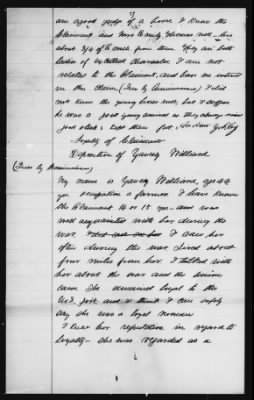 7
are a good judge of a horse. I knew the
Claimant and Mrs Emily Thomas
about 3/4 of a mile from them They are both
ladies of excellent character I am not
related to the Claimant, and have no interest
in this claim (Ques by Commissioner) I did
not know the young horse well, but I suppose
he was a good young animal as they always
good stock & kept them fat,
Loyalty of Claimant
Deposition of Yancey Williard
(Ques by Commissioner)
My name is Yancey Williard, age 44
yrs occupation a farmer I have known
the Claimant 16 or 18 yrs and was
well acquainted with her during the
war, I saw her
often during the war lived about
four miles from her. I talked with
her about the war and the union
cause She remained loyal to the
U.S. Govt and I think I can safely
say she was a loyal woman
I knew her reputation in regard to
loyalty she was regarded as a